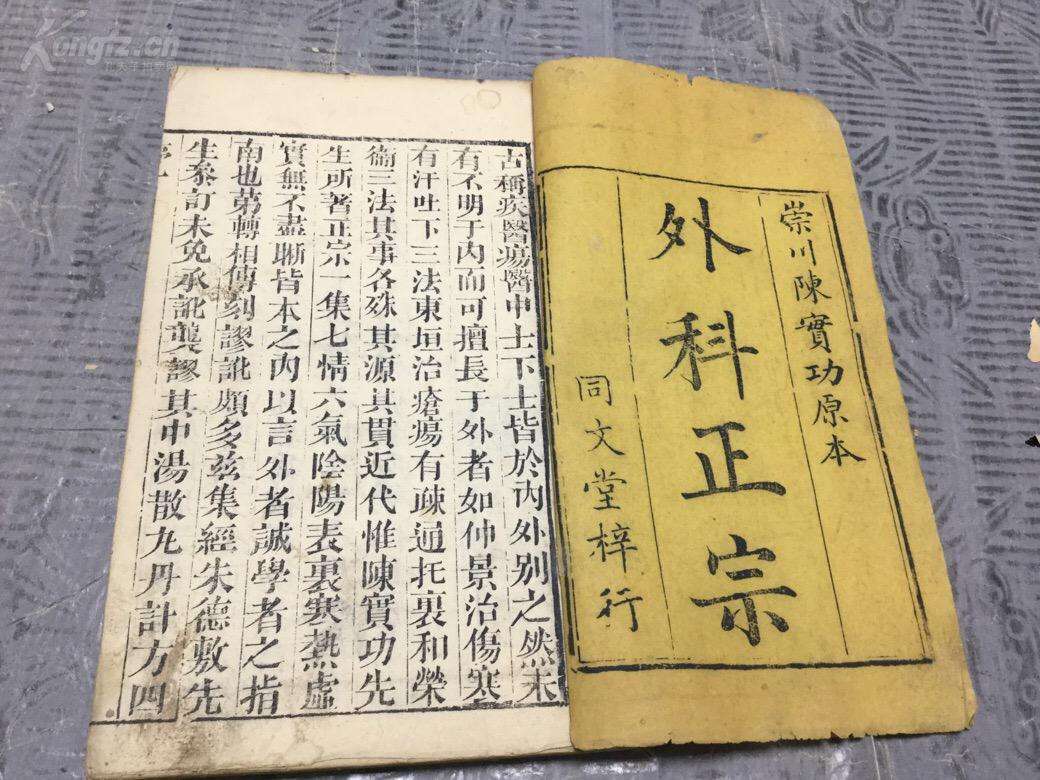 崇川陳實功原本
外科正宗
同文堂梓行
古稱疾醫瘍醫中士下士皆於內外別之然未
有不明于內而可擅長于外者如仲景治傷寒
有汗吐下三法東垣治瘡瘍有疎通托裏和榮
衛三法其事各殊其源其貫近代惟陳實功先
生所著正宗一集七情六氣陰陽表裏寒熱虛
實無不盡晰皆本之內以言外者誠學者之指
南也第轉相傳刻謬訛頗多兹集經朱德敷先
生叅訂未免承訛襲謬其中湯散九丹計方四
Kongfz.cn